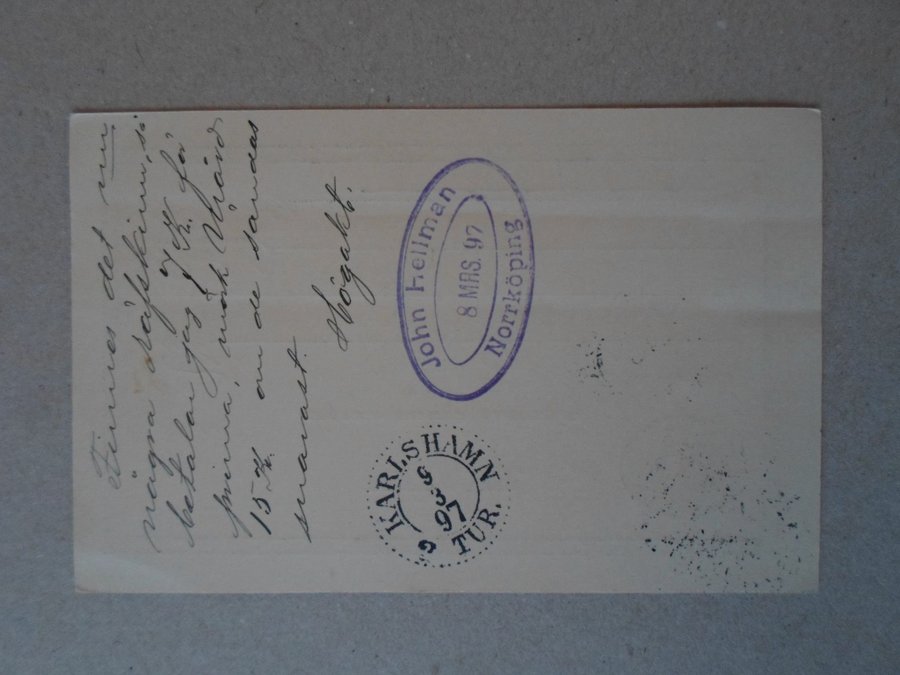 Finnes det nu
några räfskinn, så
betalar jag 7 K. för
prima, mörk Mård
15 K. om de sändas
snarast.
Högakt.
John Hellman
8 MRS. 97
Norrköping
KARLSHAMN
9 3
97
TUR.